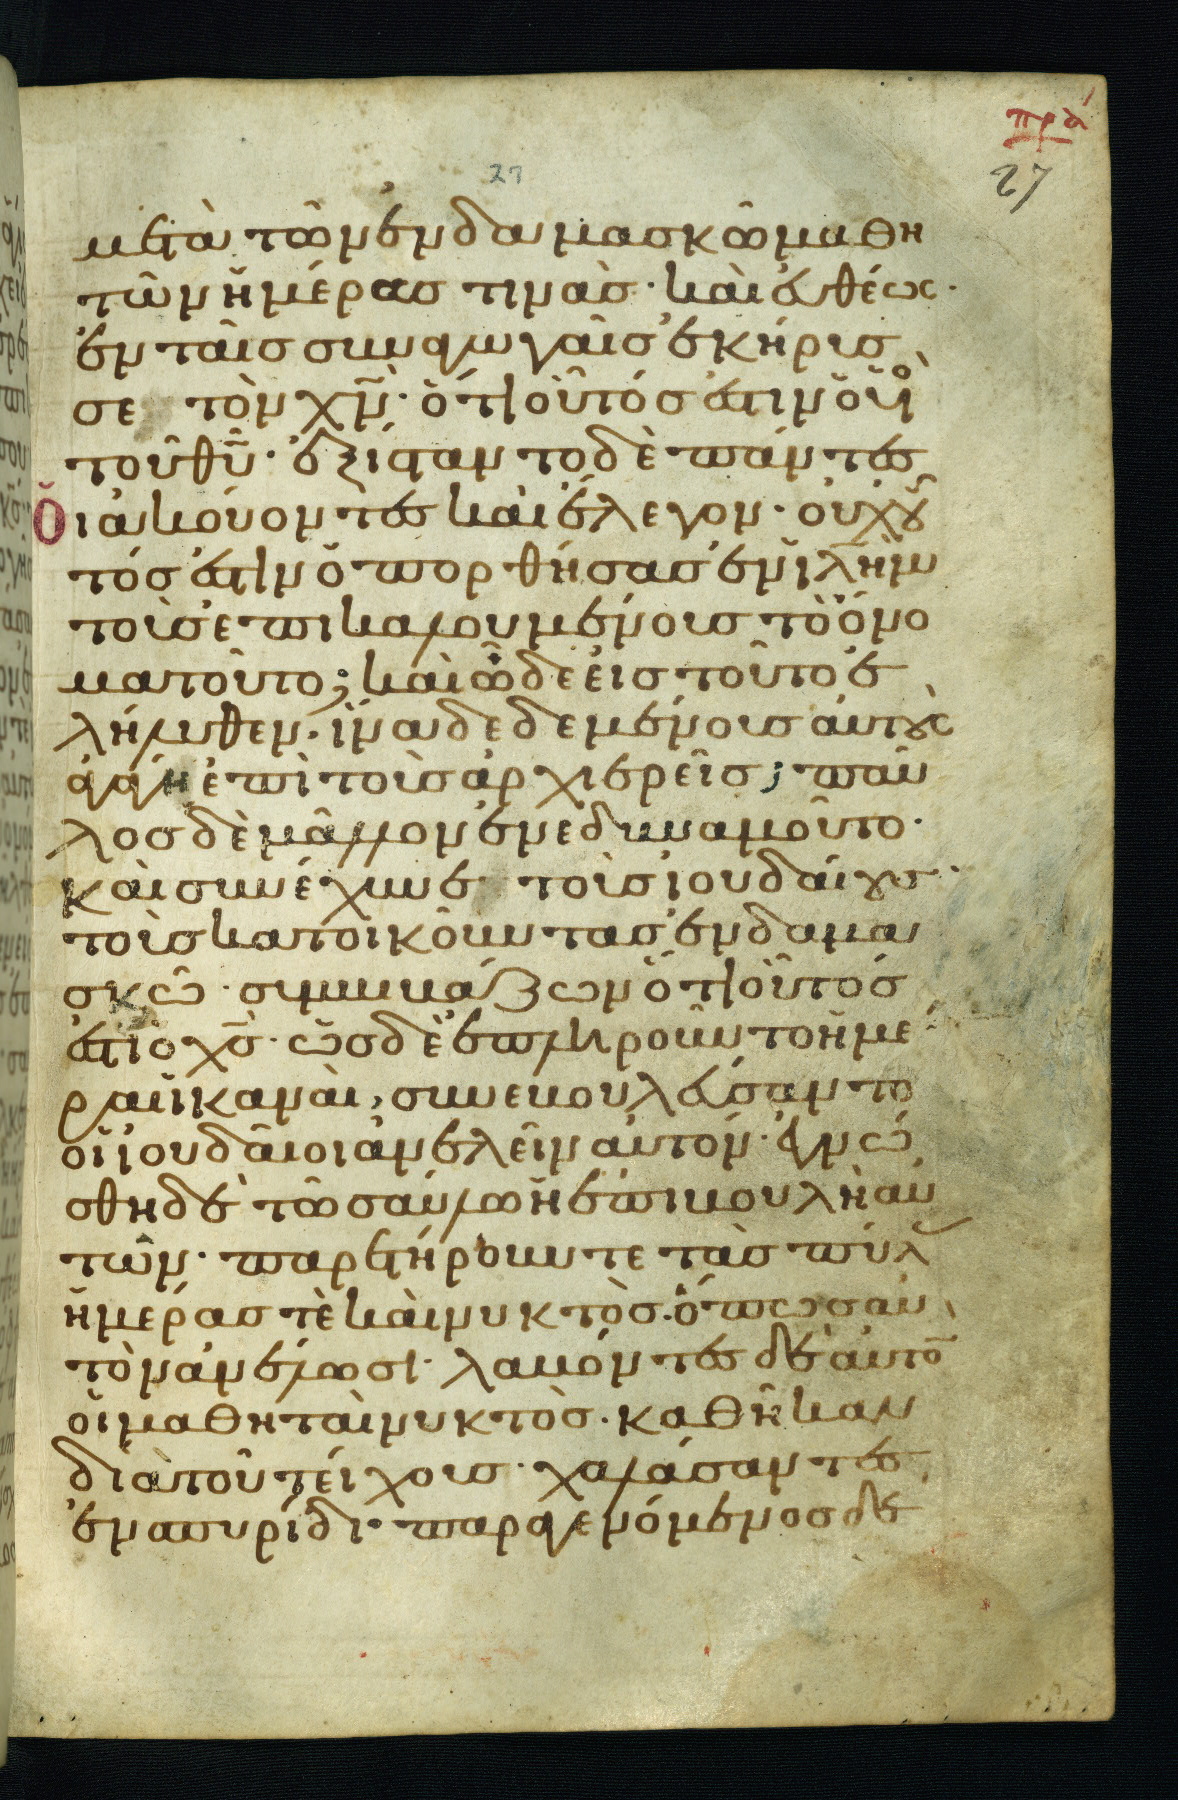 πρα
27
27
μετὰ τῶν ἐν δαμασκῶ μαθη
τῶν ἡμέρας τινὰς· καὶ εὐθέως·
ἐν ταῖς συναγωγαῖς ἐκήρυσ
σε τὸν χ̅ν̅· ὅτι οὗτός ἐστιν ὁ υἱὸς
τοῦ θ̅υ̅· ἐξίσταντο δὲ πάντες
Οἱ ἀκούοντες καὶ ἔλεγον· οὐχ οὗ
τός ἐστιν ὁ πορθήσας ἐν ἱ̅λ̅η̅μ̅
τοὺς ἐπικαλουμένους τὸ ὄνο
μα τοῦτο; καὶ ὧδε εἰς τοῦτο ἐ
λήλυθεν· ἵνα δεδεμένους αὐτοὺς
ἀγάγη ἐπὶ τοὺς ἀρχιερεῖς; παῦ
λος δὲ μᾶλλον ἐνεδυναμοῦτο·
καὶ συνέχυνε τοὺς ἰουδαίους·
τοὺς κατοικοῦντας ἐν δαμα
σκῶ· συμβιβάζων ὅτι οὗτός
ἐστι ὁ χ̅ς̅· ὡς δὲ ἐπληροῦντο ἡμέ
ραι ἱκαναὶ, συνεβουλεύσαντο
οἱ ἰουδαῖοι ἀνελεῖν αὐτόν· ἐγνώ
σθη δὲ τῶ σαύλω ἡ ἐπιβουλὴ αὐ
τῶν· παρετήρουν τε τὰς πύλας
ἡμέρας τὲ καὶ νυκτὸς· ὅπως αὐ
τὸν ἀνέλωσι· λαβόντες δὲ αὐτὸν
οἱ μαθηταὶ νυκτὸς· καθῆκαν
διὰ τοῦ τείχους· χαλάσαντες
ἐν σπυρίδι· παραγενόμενος δὲ